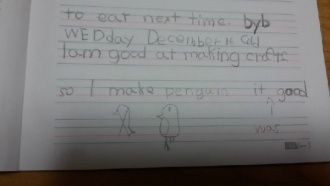 to eat next time. byb
WEDday December 16 Cold
Iam good at making crafts
so I make penguin it good
was